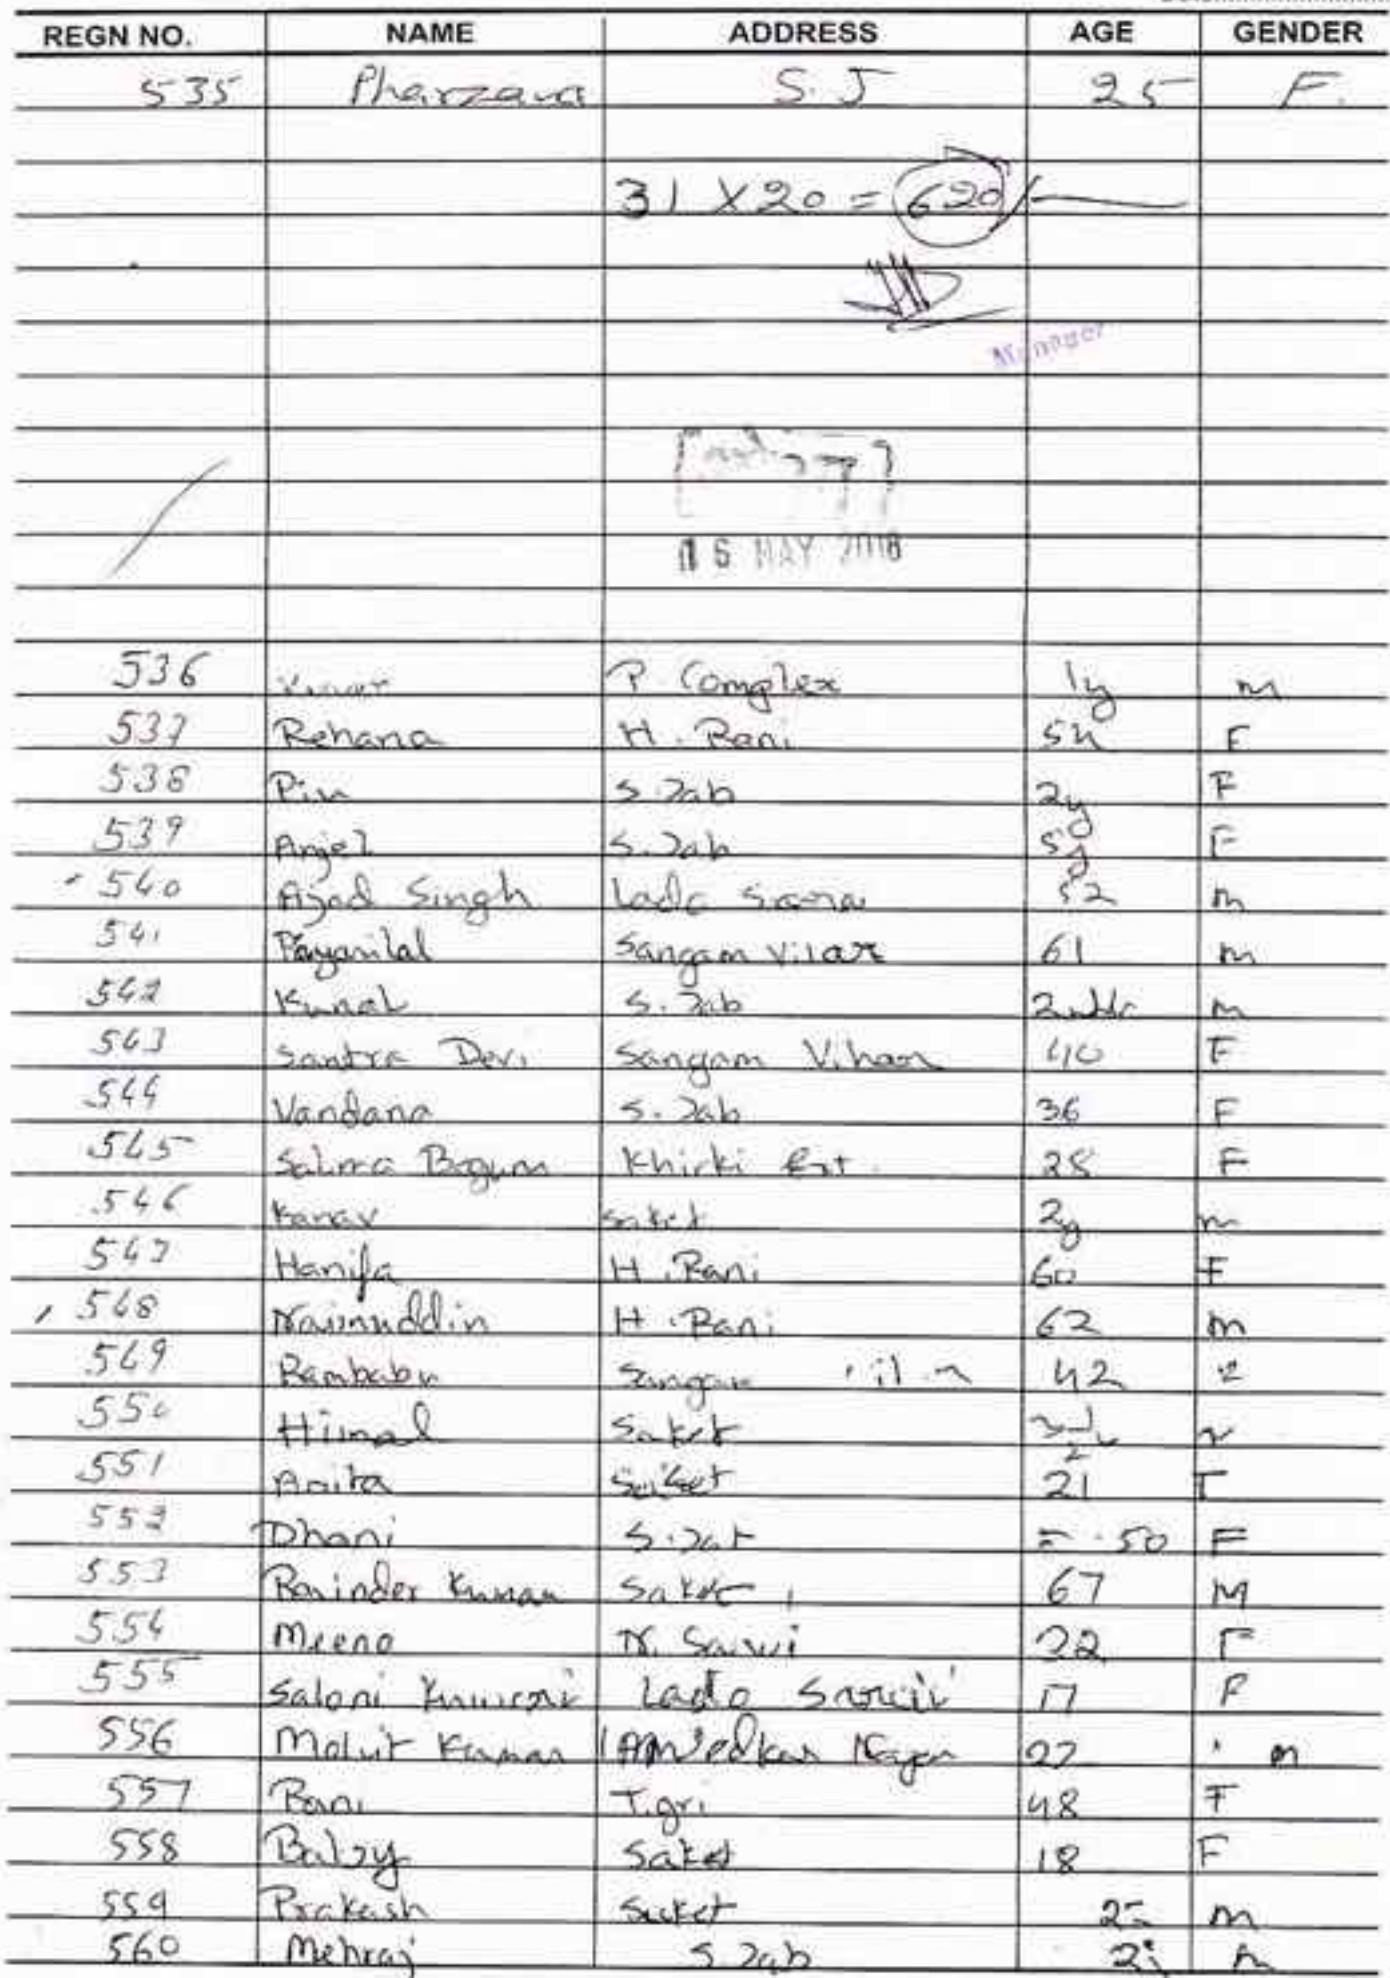 REGN NO. NAME ADDRESS AGE GENDER
535 Pharzana S. J 25 F.
31 X 20 = 620/-
Manager
16 MAY 2018
536 P. Complex 1y m
537 Rehana H. Rani F
538 S. Jab 2y F
539 Anjel S. Jab 5y F
540 Azad Singh Lado Sarai 52 m
541 Payarilal Sangam Vihar 61 m
542 Kunal S. Jab m
543 Santra Devi Sangam Vihar 40 F
544 Vandana S. Jab 36 F
545 Salma Begum Khirki Ext. 28 F
546 Kanav Saket 2y m
547 Hanifa H. Rani 60 F
548 Naimuddin H. Rani 62 m
549 Rambabu Sangam 42
550 Himal Saket
551 Anita Saket 21 F
552 Dhani S. Jab 50 F
553 Ravinder Kumar Saket 67 M
554 Meena N. Sarai 22 F
555 Saloni Kumari Lado Sarai 17 F
556 Mohit Kumar Ambedkar Nagar 27 m
557 Rani Tigri 48 F
558 Baby Saket 18 F
559 Prakash Saket m
560 Mehraj S. Jab m